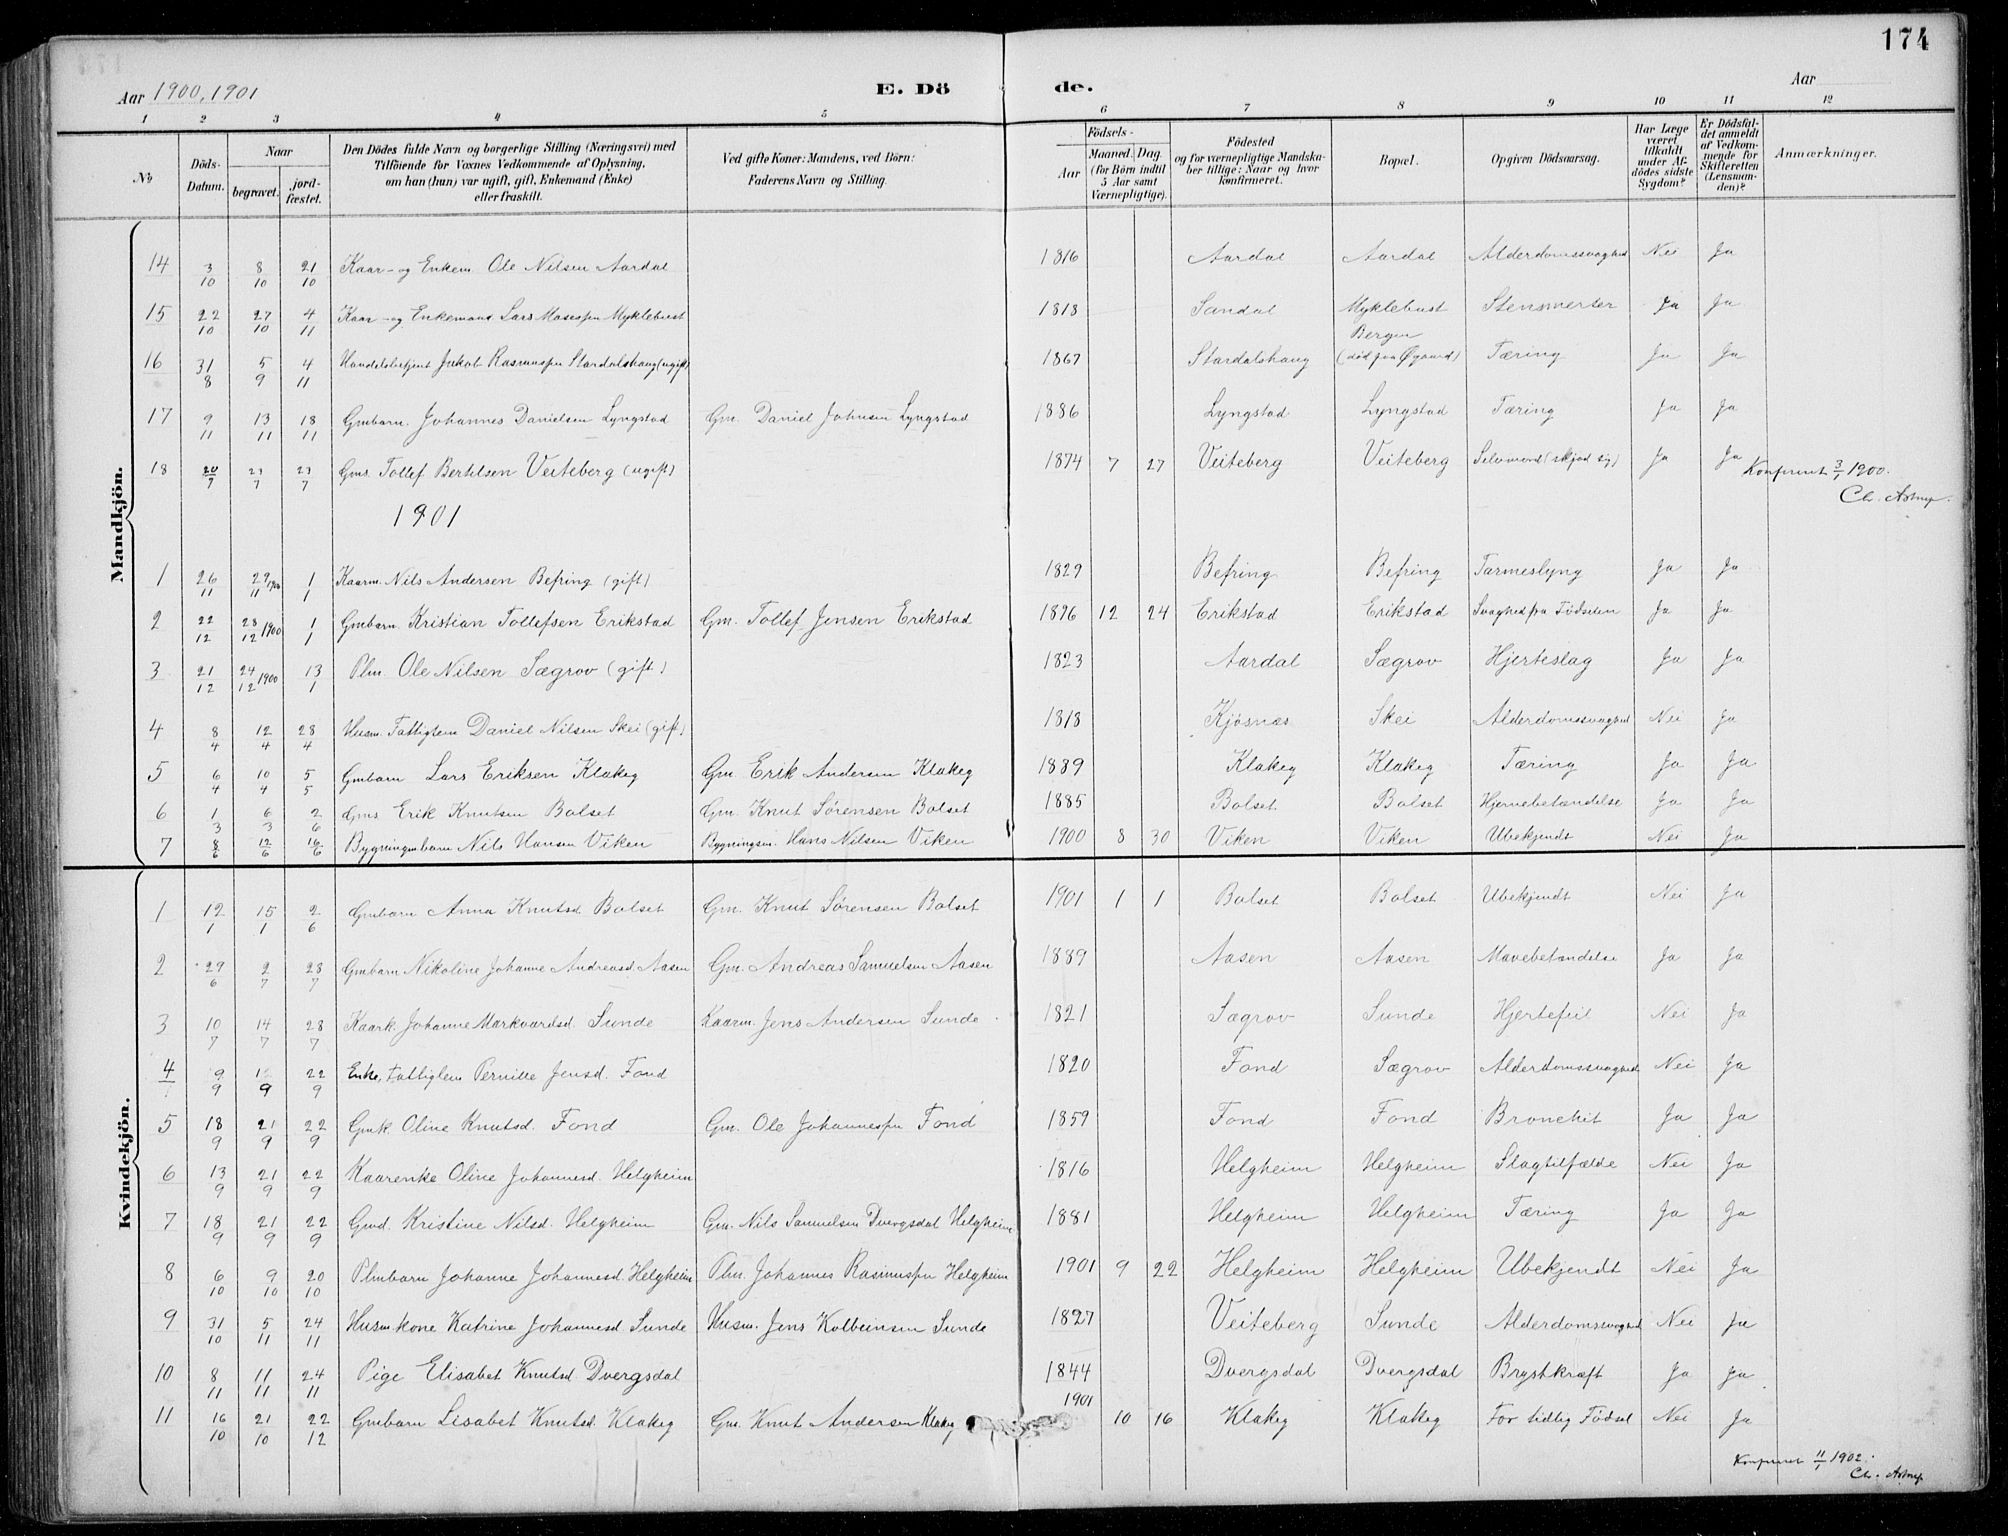 174
Aar 1900, 1901
E. Dö
de.
Aar
1 2 3 4 5 6 7 8 9 10 11 12
No
Döds-Datum.
Naar
begravet.
jord-fæstet.
Den Dödes fulde Navn og borgerlige Stilling (Næringsvei) med
Tilföiende for Voxnes Vedkommende af Oplysning,
om han (hun) var ugift, gift, Enkemand (Enke)
eller fraskilt.
Ved gifte Koner: Mandens, ved Börn:
Faderens Navn og Stilling.
Födsels-
Aar
Maaned. Dag.
(for Börn indtil
5 Aar samt
Værnepligtige).
Födested
og for værnepligtige Mandska-
ber tillige: Naar og hvor
konfirmeret.
Bopæl.
Opgiven Dödsaarsag.
Har Læge
været
tilkaldt
under Af-
dödes sidste
Sygdom?
Er Dödsfal-
det anmeldt
af Vedkom-
mende for
Skifteretten
(Lensman-
den)?
Anmærkninger.
Mandkjön.
14 3/10 8/10 21/10 Kaar- og Enkem. Ole Nilsen Aardal 1816 Aardal Aardal Alderdomssvaghed Nei Ja
15 22/10 27/10 4/11 Kaar- og Enkemand Lars Mosesen Myklebust 1818 Sandal Myklebust Stensmerter Ja Ja
16 31/8 5/9 4/11 Handelsbetjent Jakob Rasmussen Stardalshaug (ugift) 1867 Stardalshaug Bergen (død fra Øgaard) Tæring Ja Ja
17 9/11 13/11 18/11 Gmbarn. Johannes Danielsen Lyngstad Gm. Daniel Johnsen Lyngstad 1886 Lyngstad Lyngstad Tæring Ja Ja
18 20/7 27/7 Gms. Tollef Bertelsen Veiteberg (ugift) 1874 7 27 Veiteberg Veiteberg Selvmord (skjød sig) Ja Ja
Konfereret 3/1 1900.
Ch. Astrup.
1901
1 26/11 29/11 1900 1/1 Kaarm. Nils Andersen Befring (gift) 1829 Befring Befring Tarmeslyng Ja Ja
2 22/12 28/12 1900 1/1 Gmbarn. Kristian Tollefsen Erikstad Gm. Tollef Jensen Erikstad 1896 12 24 Erikstad Erikstad Svaghed fra Fødselen Ja Ja
3 21/12 24/12 1900 13/1 Plm. Ole Nilsen Sægrov (gift) 1823 Aardal Sægrov Hjerteslag Ja Ja
4 8/4 12/4 28/4 Husm. Fattiglem Daniel Nilsen Skei (gift) 1818 Kjøsnæs Skei Alderdomssvaghed Nei Ja
5 6/4 10/4 5/5 Gmbarn Lars Eriksen Klakeg Gm. Erik Andersen Klakeg 1889 Klakeg Klakeg Tæring Ja Ja
6 1/3 6/3 2/6 Gms Erik Knutsen Bolset Gm. Knut Sørensen Bolset 1885 Bolset Bolset Hjernebetændelse Ja Ja
7 8/6 12/6 16/6 Bygningmbarn Nils Hansen Viken Bygningsm. Hans Nilsen Viken 1900 8 30 Viken Viken Ubekjendt Nei Ja
Kvindekjön.
1 12/1 15/1 2/6 Gmbarn Anna Knutsd. Bolset Gm. Knut Sørensen Bolset 1901 1 1 Bolset Bolset Ubekjendt Nei Ja
2 29/6 2/7 28/7 Gmbarn Nikoline Johanne Andreasd. Aasen Gm. Andreas Samuelsen Aasen 1889 Aasen Aasen Mavebetændelse Ja Ja
3 10/7 14/7 28/7 Kaark. Johanne Markvardsd. Sunde Kaarm. Jens Andersen Sunde 1821 Sægrov Sunde Hjertefeil Nei Ja
4 9/9 22/9 Enke, Fattiglem Pernille Jensd. Fond 1820 Fond Sægrov Alderdomssvaghed Nei Ja
5 18/9 21/9 22/9 Gmk. Oline Knutsd. Fond Gm. Ole Johannessen Fond 1859 Fond Fond Bronchit Ja Ja
6 13/9 21/9 22/9 Kaarenke Oline Johannesd. Helgheim 1816 Helgheim Helgheim Slagtilfælde Nei Ja
7 18/9 21/9 22/9 Gmd. Kristine Nilsd. Helgheim Gm. Nils Samuelsen Dvergsdal Helgheim 1881 Helgheim Helgheim Tæring Ja Ja
8 6/10 9/10 20/10 Plmbarn Johanne Johannesd. Helgheim Plm. Johannes Rasmussen Helgheim 1901 9 22 Helgheim Helgheim Ubekjendt Nei Ja
9 31/10 5/11 24/11 Husm.kone Katrine Johannesd. Sunde Husm. Jens Kolbeinsen Sunde 1827 Veiteberg Sunde Alderdomssvaghed Nei Ja
10 8/11 11/11 24/11 Pige Elisabet Knutsd. Dvergsdal 1844 Dvergsdal Dvergsdal Brystkræft Ja Ja
11 16/10 21/10 22/12 Gmbarn Lisabet Knutsd. Klakeg Gm. Knut Andersen Klakeg 1901 10 16 Klakeg Klakeg For tidlig Fødsel Nei Ja
Konfereret 11/1 1902.
Ch. Astrup